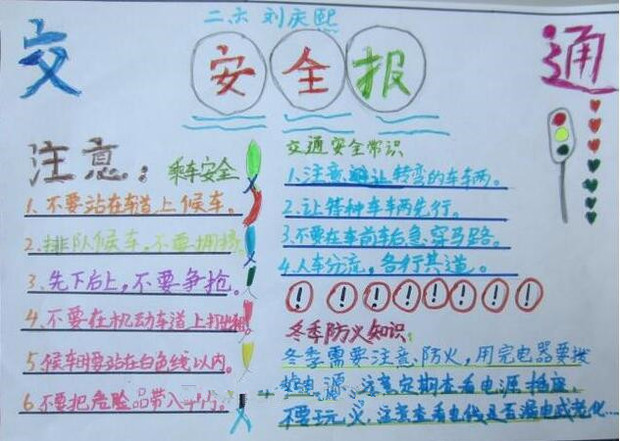 二六 刘庆熙
交 安全报 通
注意： 乘车安全
1.不要站在车道上候车。
2.排队候车，不要拥挤
3.先下后上，不要争抢。
4.不要在机动车道上打出租
5.候车时要站在白色线以内。
6.不要把危险品带入
交通安全常识
1.注意避让转弯的车车两。
2.让特种车车两先行。
3.不要在车前车后急穿马路。
4.人车分流，各行其道。
! ! ! ! ! ! ! !
冬季防火知识：
冬季需要注意防火，用完电器要拔
电源，注意定期查看电源插座，
不要玩火，注意查看电线是否漏电或老化…